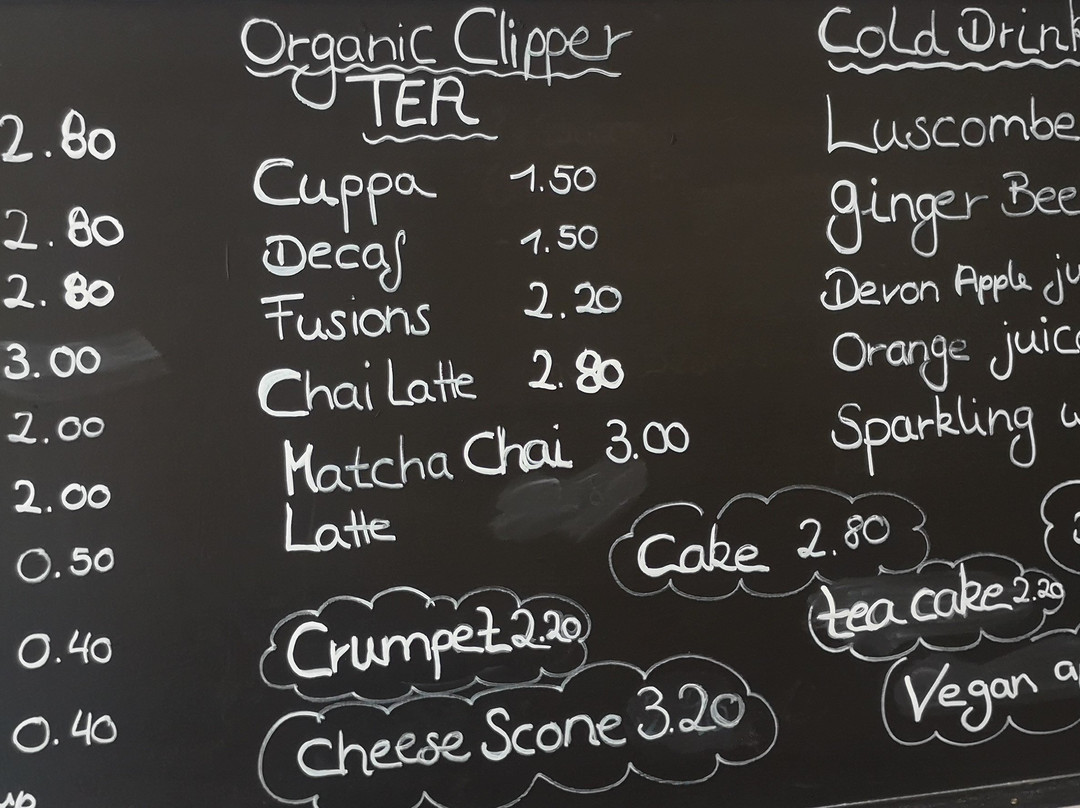 2.80
2.80
2.80
3.00
2.00
2.00
0.50
0.40
0.40
Organic Clipper
TEA
Cuppa 1.50
Decaf 1.50
Fusions 2.20
Chai Latte 2.80
Matcha Chai 3.00
Latte
Crumpet 2.20
Cheese Scone 3.20
Cake 2.80
tea cake 2.20
Vegan
Cold Drink
Luscombe
ginger Bee
Devon Apple ju
Orange juic
Sparkling